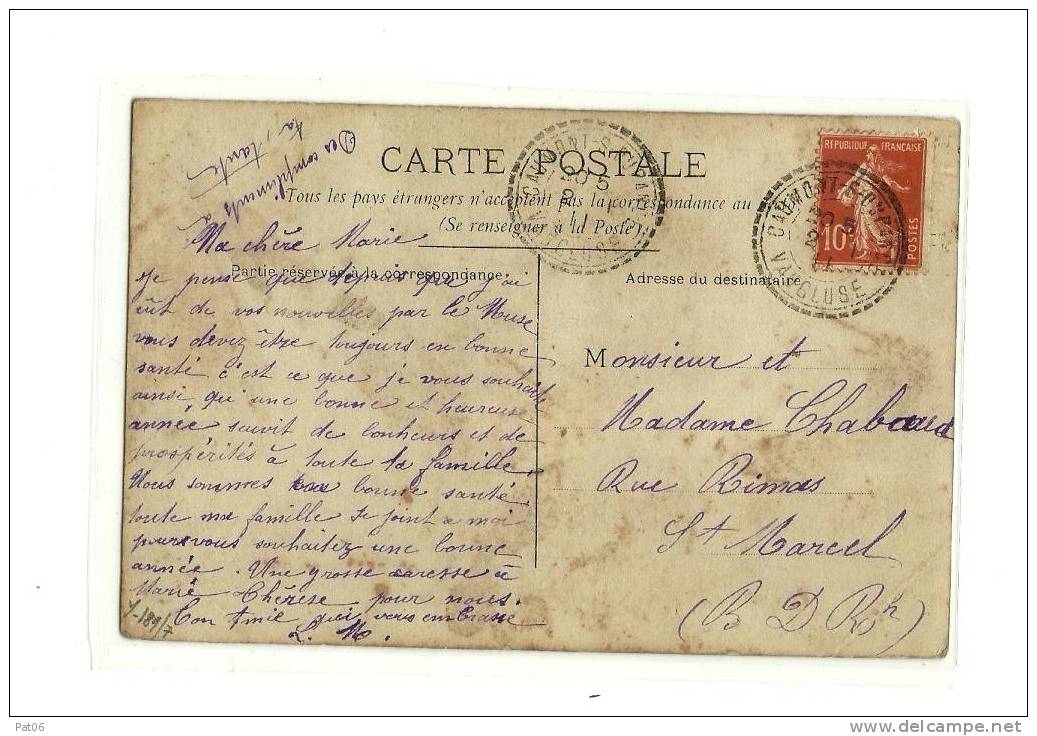 Des compliments à
ta tante
CARTE POSTALE
Tous les pays étrangers n'acceptent pas la correspondance au
(Se renseigner à la Poste).
Ma chère Marie
Partie réservée à la correspondance
Adresse du destinataire
Je pense que depuis que j'ai
eût de vos nouvelles par le
vous devez être toujours en bonne
santé c'est ce que je vous souhaite
ainsi qu'une bonne et heureuse
année suivit de bonheurs et de
prospérités à toute ta famille.
Nous sommes bonne santé
toute ma famille se joint a moi
pour vous souhaitez une bonne
année. Une grosse caresse à
Marie Thérèse pour nous.
Ton Amie qui vous embrasse
L. M.
Monsieur et
Madame Chabaud
Rue Rimas
St Marcel
(B D Rh)
REPUBLIQUE FRANÇAISE
10
POSTES
CAUMONT-S-DURANCE
20 5
VAUCLUSE
CAUMONT-S-DURANCE
20 5
VAUCLUSE
Y-189/7
Pat06
www.delcampe.net